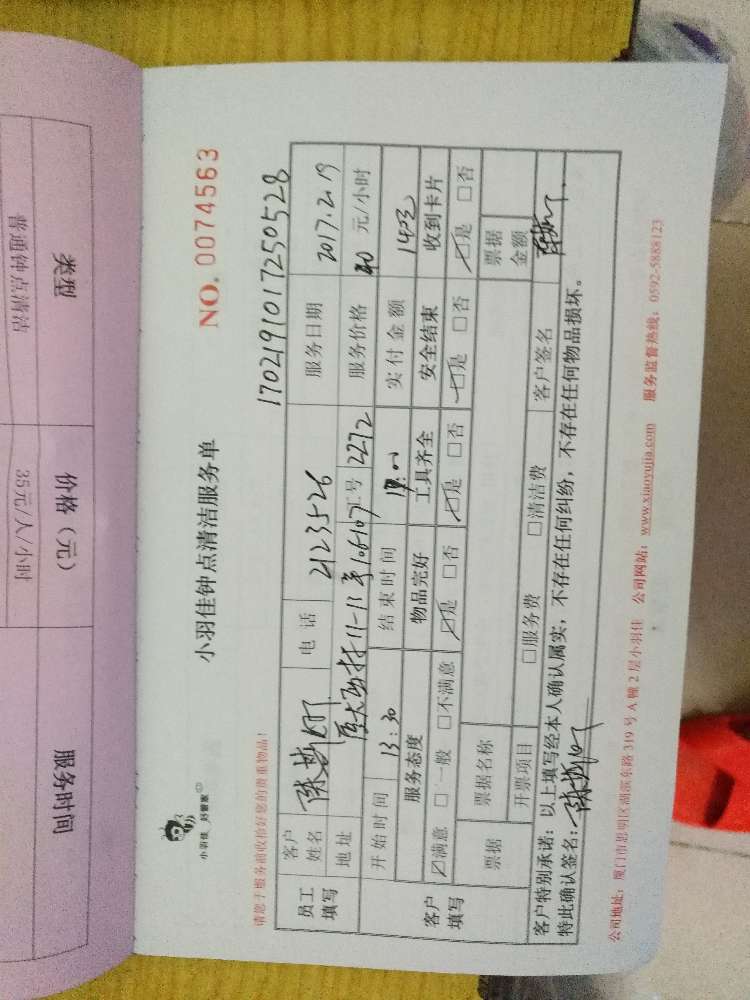 类型
价格（元）
服务时间
普通钟点清洁
35元/人/小时
小羽佳 好管家
小羽佳钟点清洁服务单
NO. 0074563
请您于服务前收拾好您的贵重物品！
17021910172 50528
员工填写
客户姓名
电话 2123526
服务日期 2017.2.19
地址
工号 2272
服务价格 40 元/小时
开始时间 13:30
结束时间
实付金额 140元
客户填写
服务态度
物品完好
工具齐全
安全结束
收到卡片
☑满意 □一般 □不满意
☑是 □否
☑是 □否
☑是 □否
☑是 □否
票据
票据名称
票据金额
开票项目
□服务费 □清洁费
客户签名
客户特别承诺：以上填写经本人确认属实，不存在任何纠纷，不存在任何物品损坏。
特此确认签名：
公司地址：厦门市思明区湖滨东路 319 号 A 幢 2 层小羽佳 公司网站：www.xiaoyujia.com 服务监督热线：0592-5888123